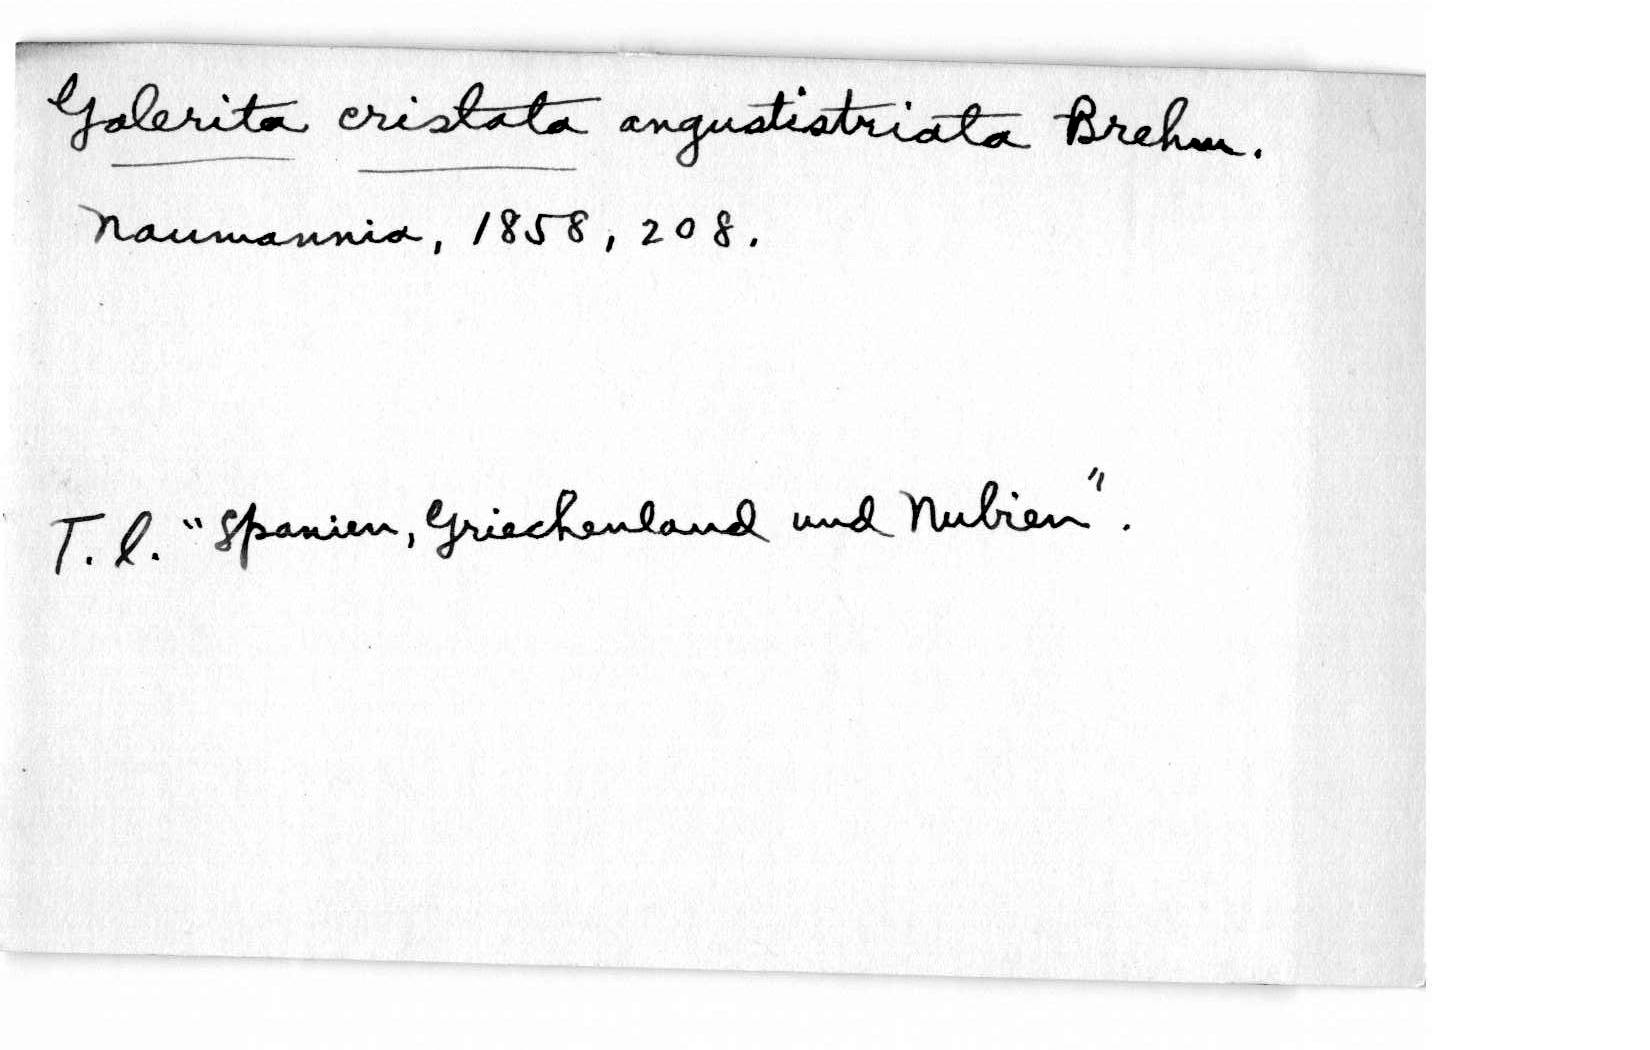 Galerita cristata angustistriata Brehm.
Naumannia, 1858, 208.
T. l. "Spanien, Griechenland und Nubien".